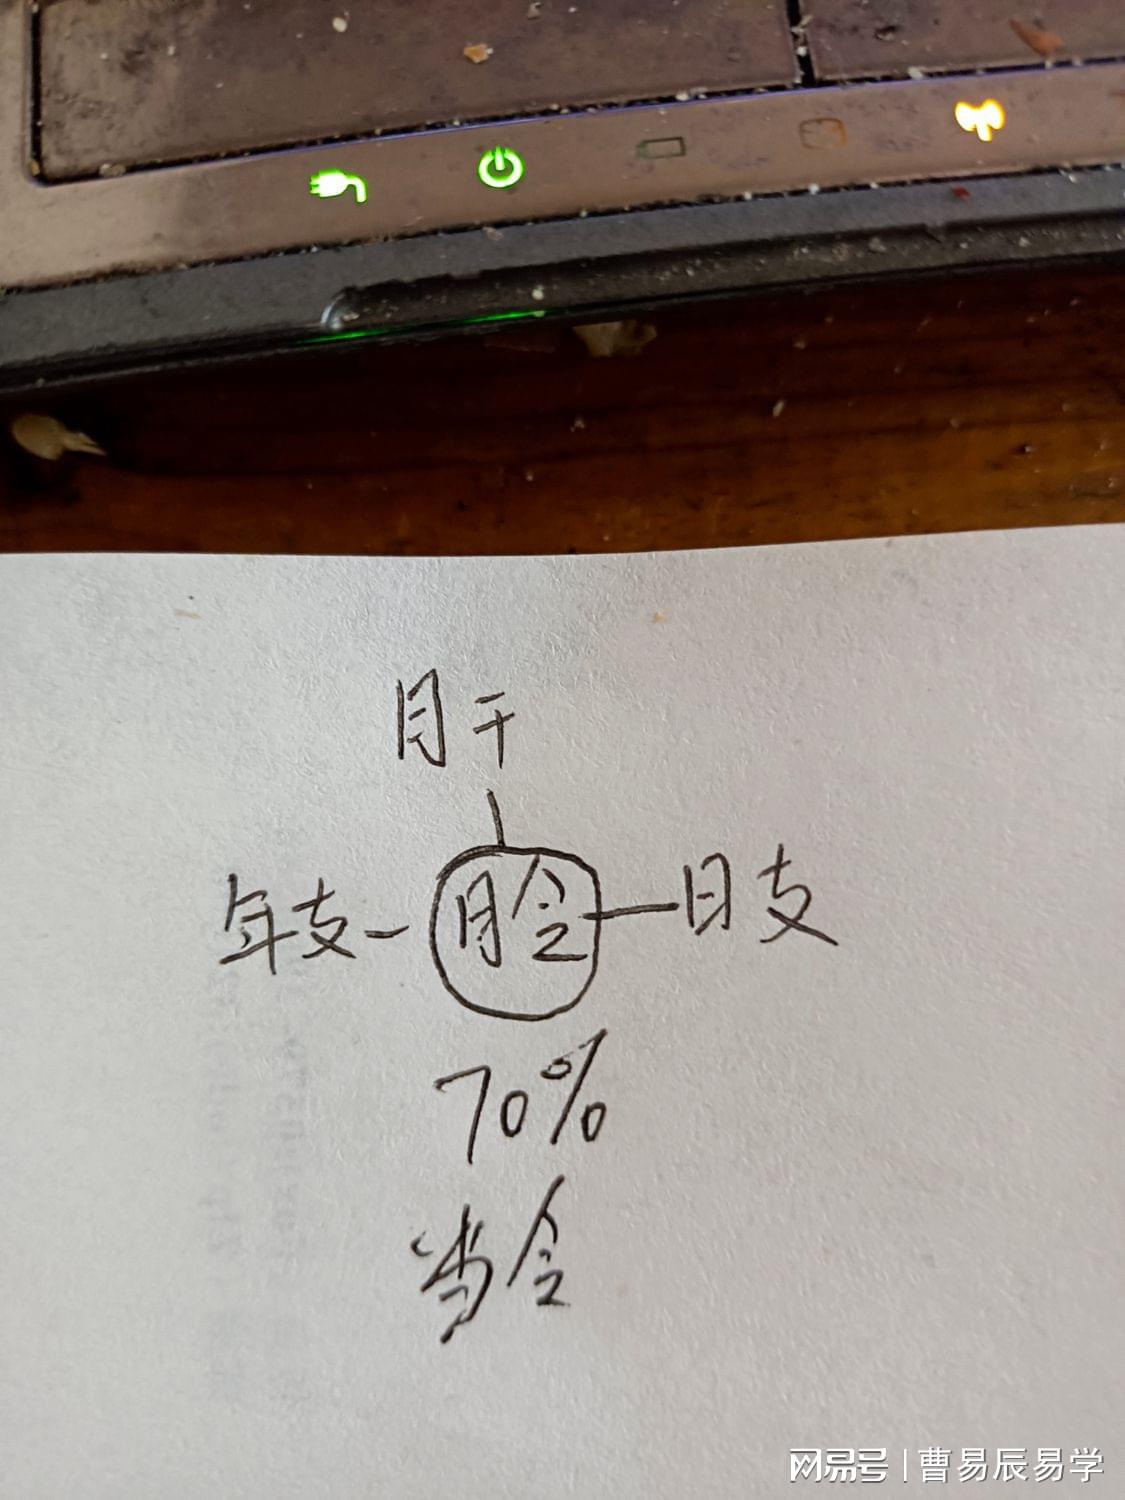 月干
年支-月令—日支
70%
当令
网易号|曹易辰易学